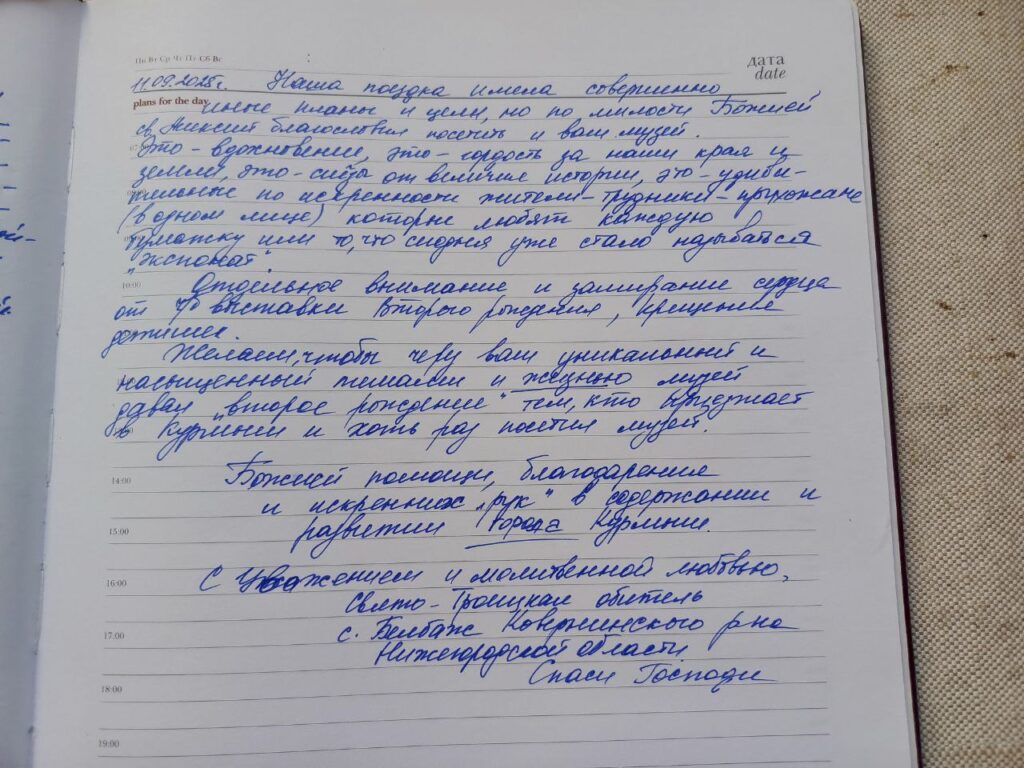 Пн Вт Ср Чт Пт Сб Вс
дата
date
11.09.2025г. Наша поездка имела совершенно
plans for the day
иные планы и цели, но по милости Божией
св. Алексий благословил посетить и ваш музей.
Это - вдохновение, это - гордость за наши края и
земли, это - от величия истории, это - удиви-
тельные по искренности жители - трудники - прихожане
(в одном лице) которые любят каждую
бумажку или то, что сегодня уже стало называться
"экспонат".
10:00
Отдельное внимание и замирание сердца
от выставки Второго рождения, Крещение
Желаем, чтобы через ваш уникальный и
насыщенный темами и жизнью музей
давал "второе рождение" тем, кто приезжает
в Курмыш и хоть раз посетил музей.
14:00
Божией помощи, благодарения
и искренних "рук" в содержании и
15:00
развитии города Курмыш.
16:00
С уважением и молитвенной любовью,
Свято-Троицкая обитель
17:00
с. Белбаж Ковернинского р-на
Нижегородской области
Спаси Господи
18:00
19:00